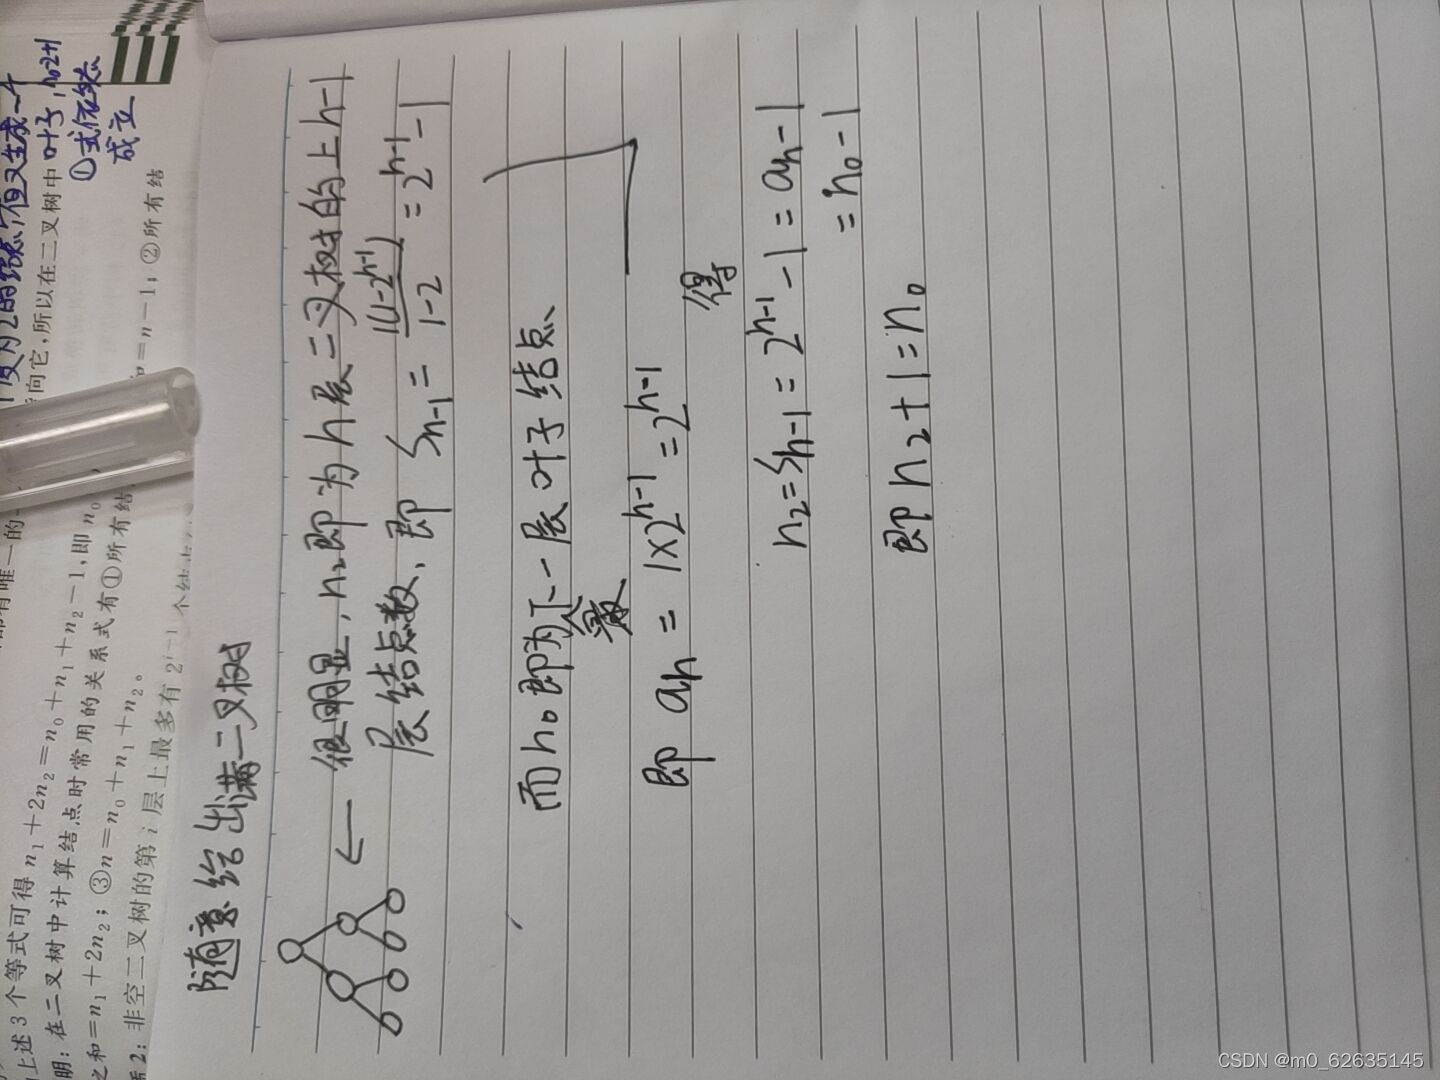 度为2的结点,但又生成一个
向它,所以在二叉树中叶子,n₀=n₂+1
①式依然
成立
上述3个等式可得 n₁+2n₂=n₀+n₁+n₂-1,即 n₀
明:在二叉树中计算结点时常用的关系式有①所有结
=n-1;②所有结
之和=n₁+2n₂;③n=n₀+n₁+n₂。
2:非空二叉树的第 i 层上最多有 2^{i-1} 个结
随意给出满二叉树
← 很明显,n₂即为h层二叉树的上h-1
层结点数,即 S_{h-1} = \frac{1(1-2^{h-1})}{1-2} = 2^{h-1}-1
而n₀即为下一层叶子结点
即 a_h = 1×2^{h-1} = 2^{h-1}
得
n₂=S_{h-1}=2^{h-1}-1=a_h-1
=n₀-1
即 n₂+1=n₀
CSDN @m0_62635145